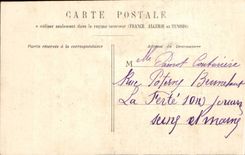 CARTE POSTALE
à utiliser seulement dans le régime intérieur (FRANCE, ALGÉRIE et TUNISIE)
Partie réservée à la correspondance
Adresse du Destinataire
M
Couturière
Rue
La Ferté sous jouarre
seine et marne